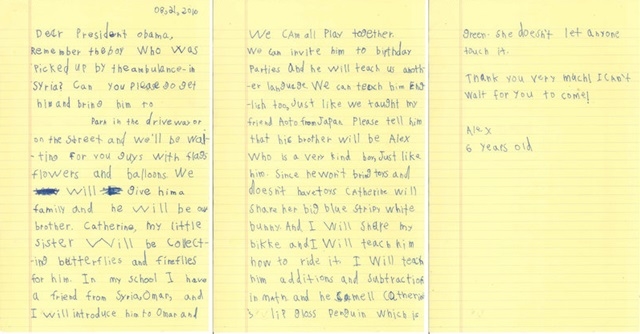 08,21,2016
Dear President obama,
Remember the boy Who Was
Picked up by the ambulance in
Syria? Can you please go get
him and bring him to
Park in the driveway or
on the street and we'll be wai-
ting For you guys with flags
flowers and balloons. We
will give him a
family and he will be our
brother. Catherine, my little
sister Will be collect-
ing butterflies and fireflies
for him. In my school I have
a friend from Syria, Omar, and
I will introduce him to Omar and
We CAn all Play together.
We can invite him to birthday
Parties and he Will teach us anoth-
er language. We can teach him Eng-
lish too, Just like we taught my
friend Aoto from Japan. Please tell him
that his brother will be Alex
Who is a very kind boy, Just like
him. Since he won't bring toys and
doesn't have toys Catherine will
share her big blue stripy white
bunny. And I Will share my
bikke and I Will teach him
how to ride it. I Will teach
him additions and subtractions
in math and he smell Catherine
's lip gloss Penguin which is
green. She doesn't let anyone
touch it.
Thank you very much! I can't
wait for you to come!
Alex
6 years old